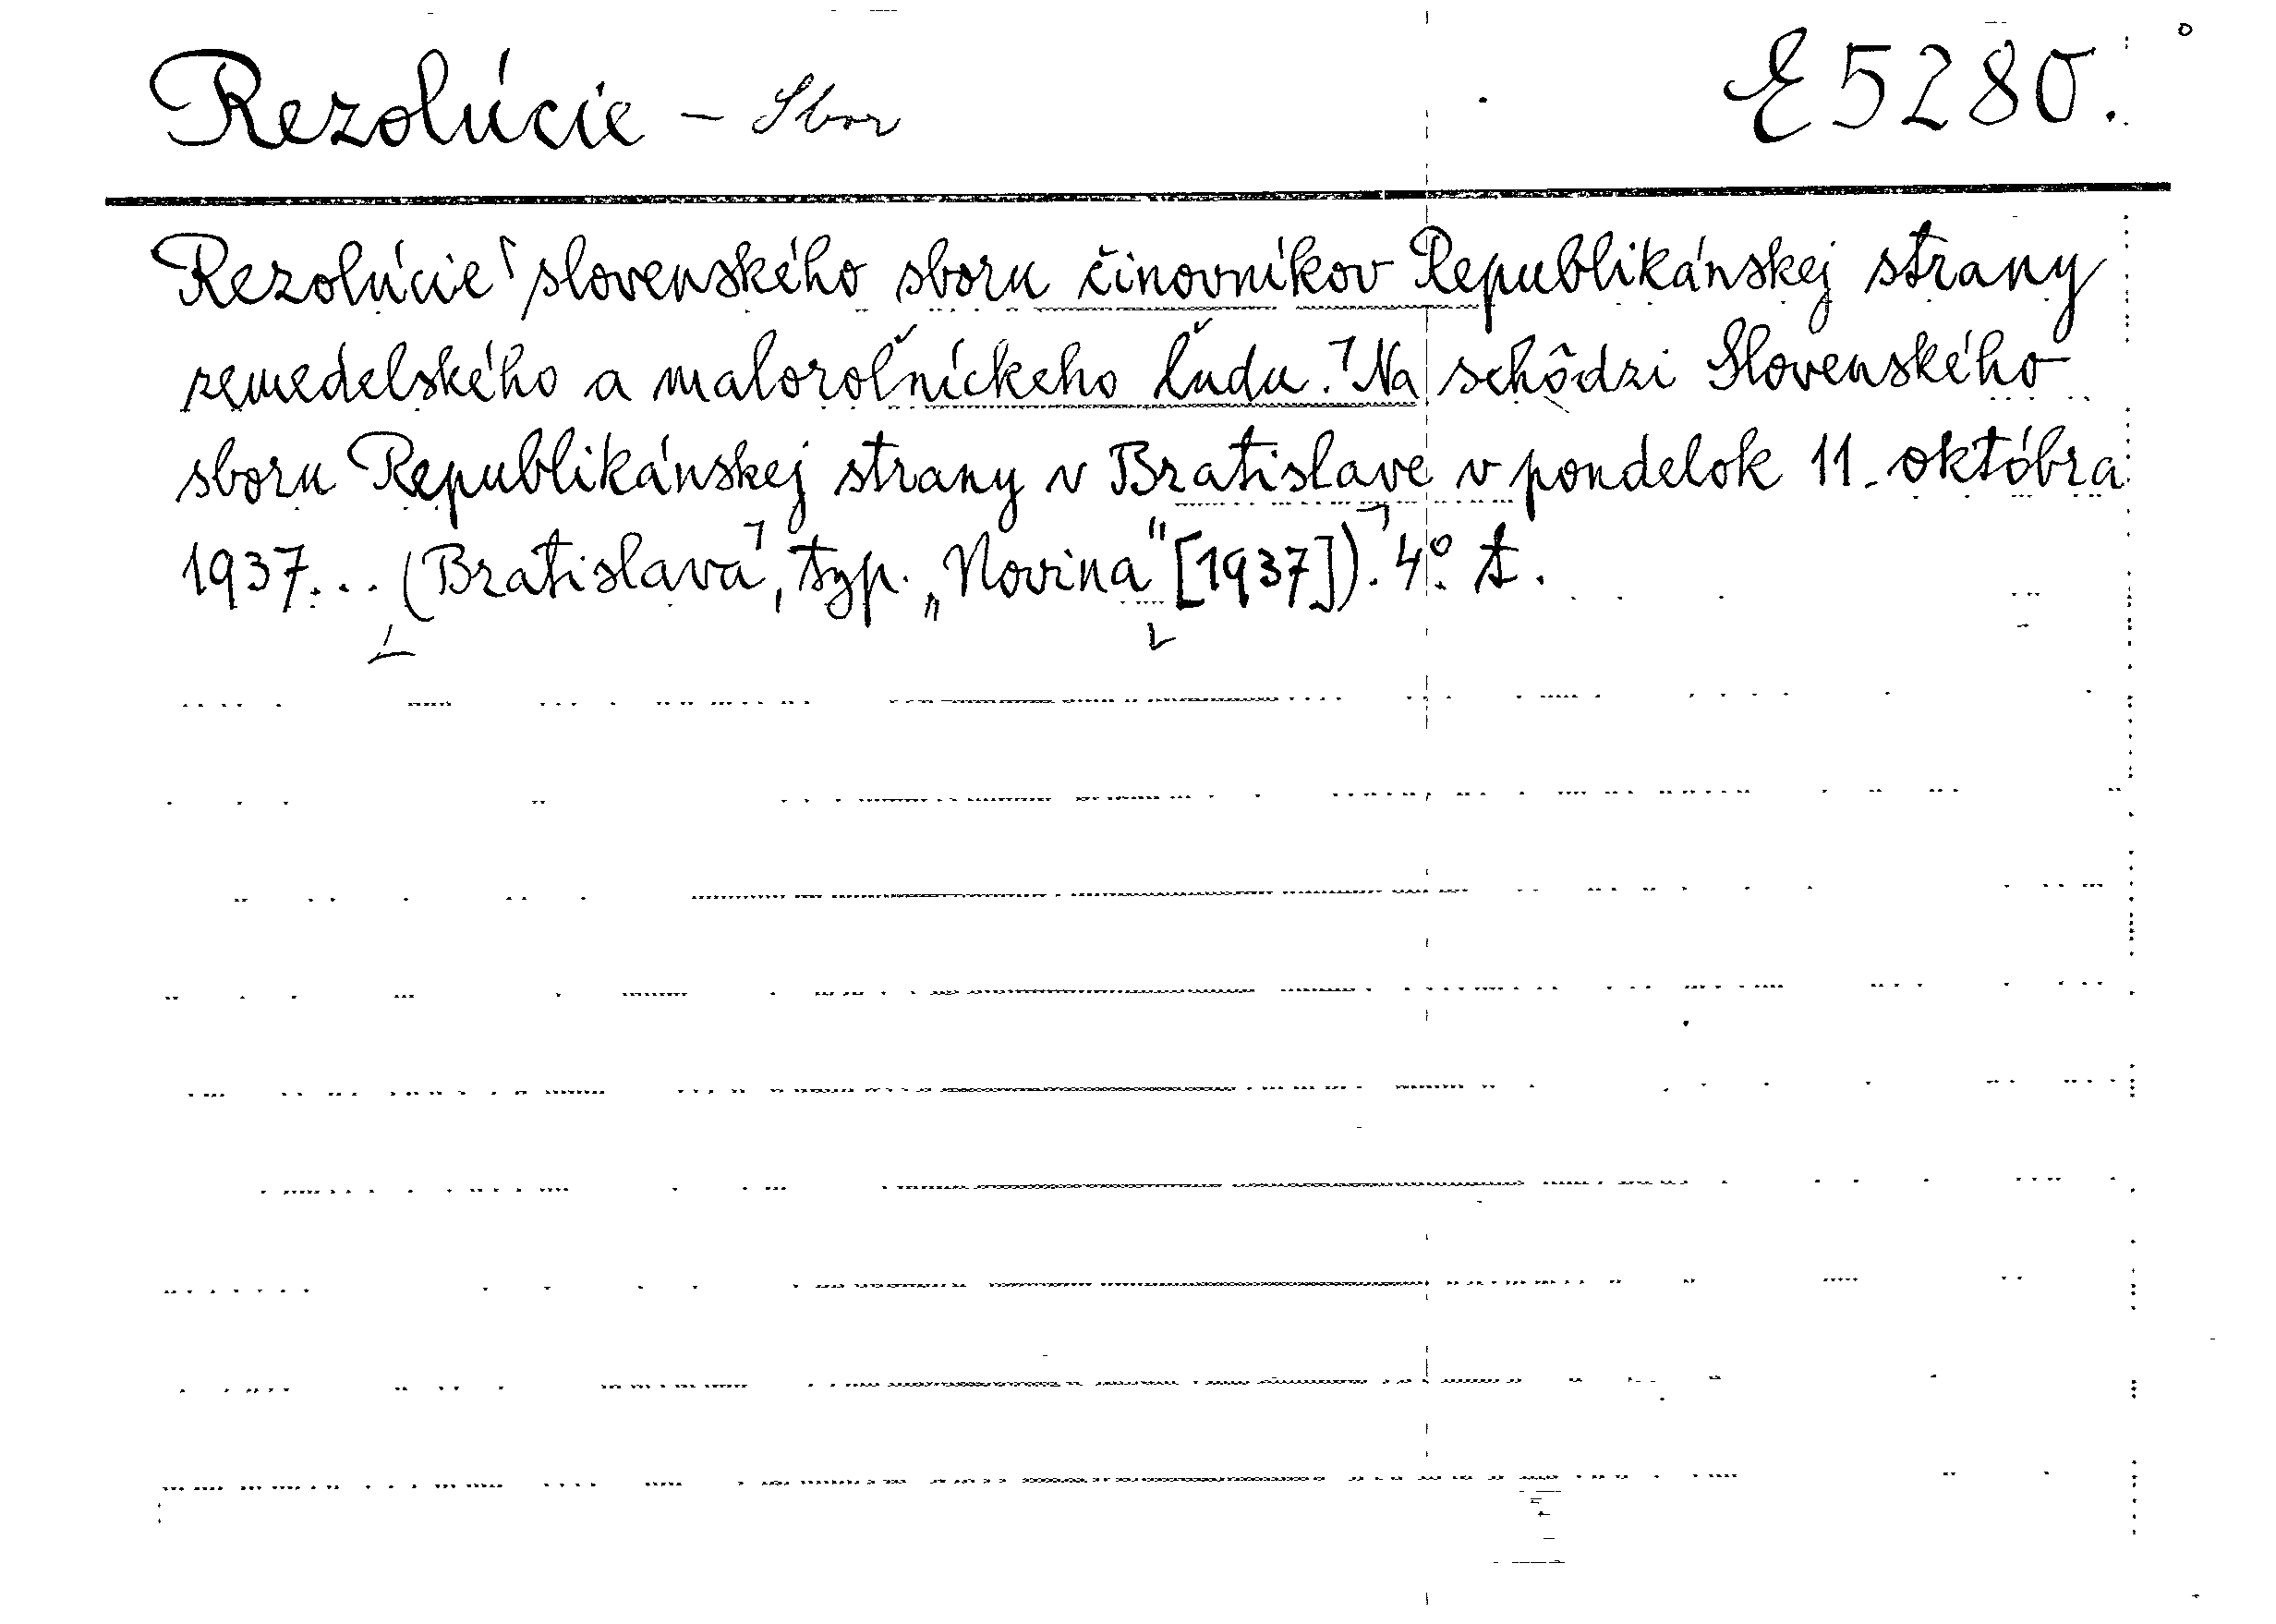 Rezolúcie – Sbor E 5280.
Rezolúcie slovenského sboru činovníkov Republikánskej strany
zemedelského a maloroľníckeho ľudu. Na schôdzi Slovenského
sboru Republikánskej strany v Bratislave v pondelok 11. októbra
1937... (Bratislava, typ. „Novina" [1937]). 4° t.